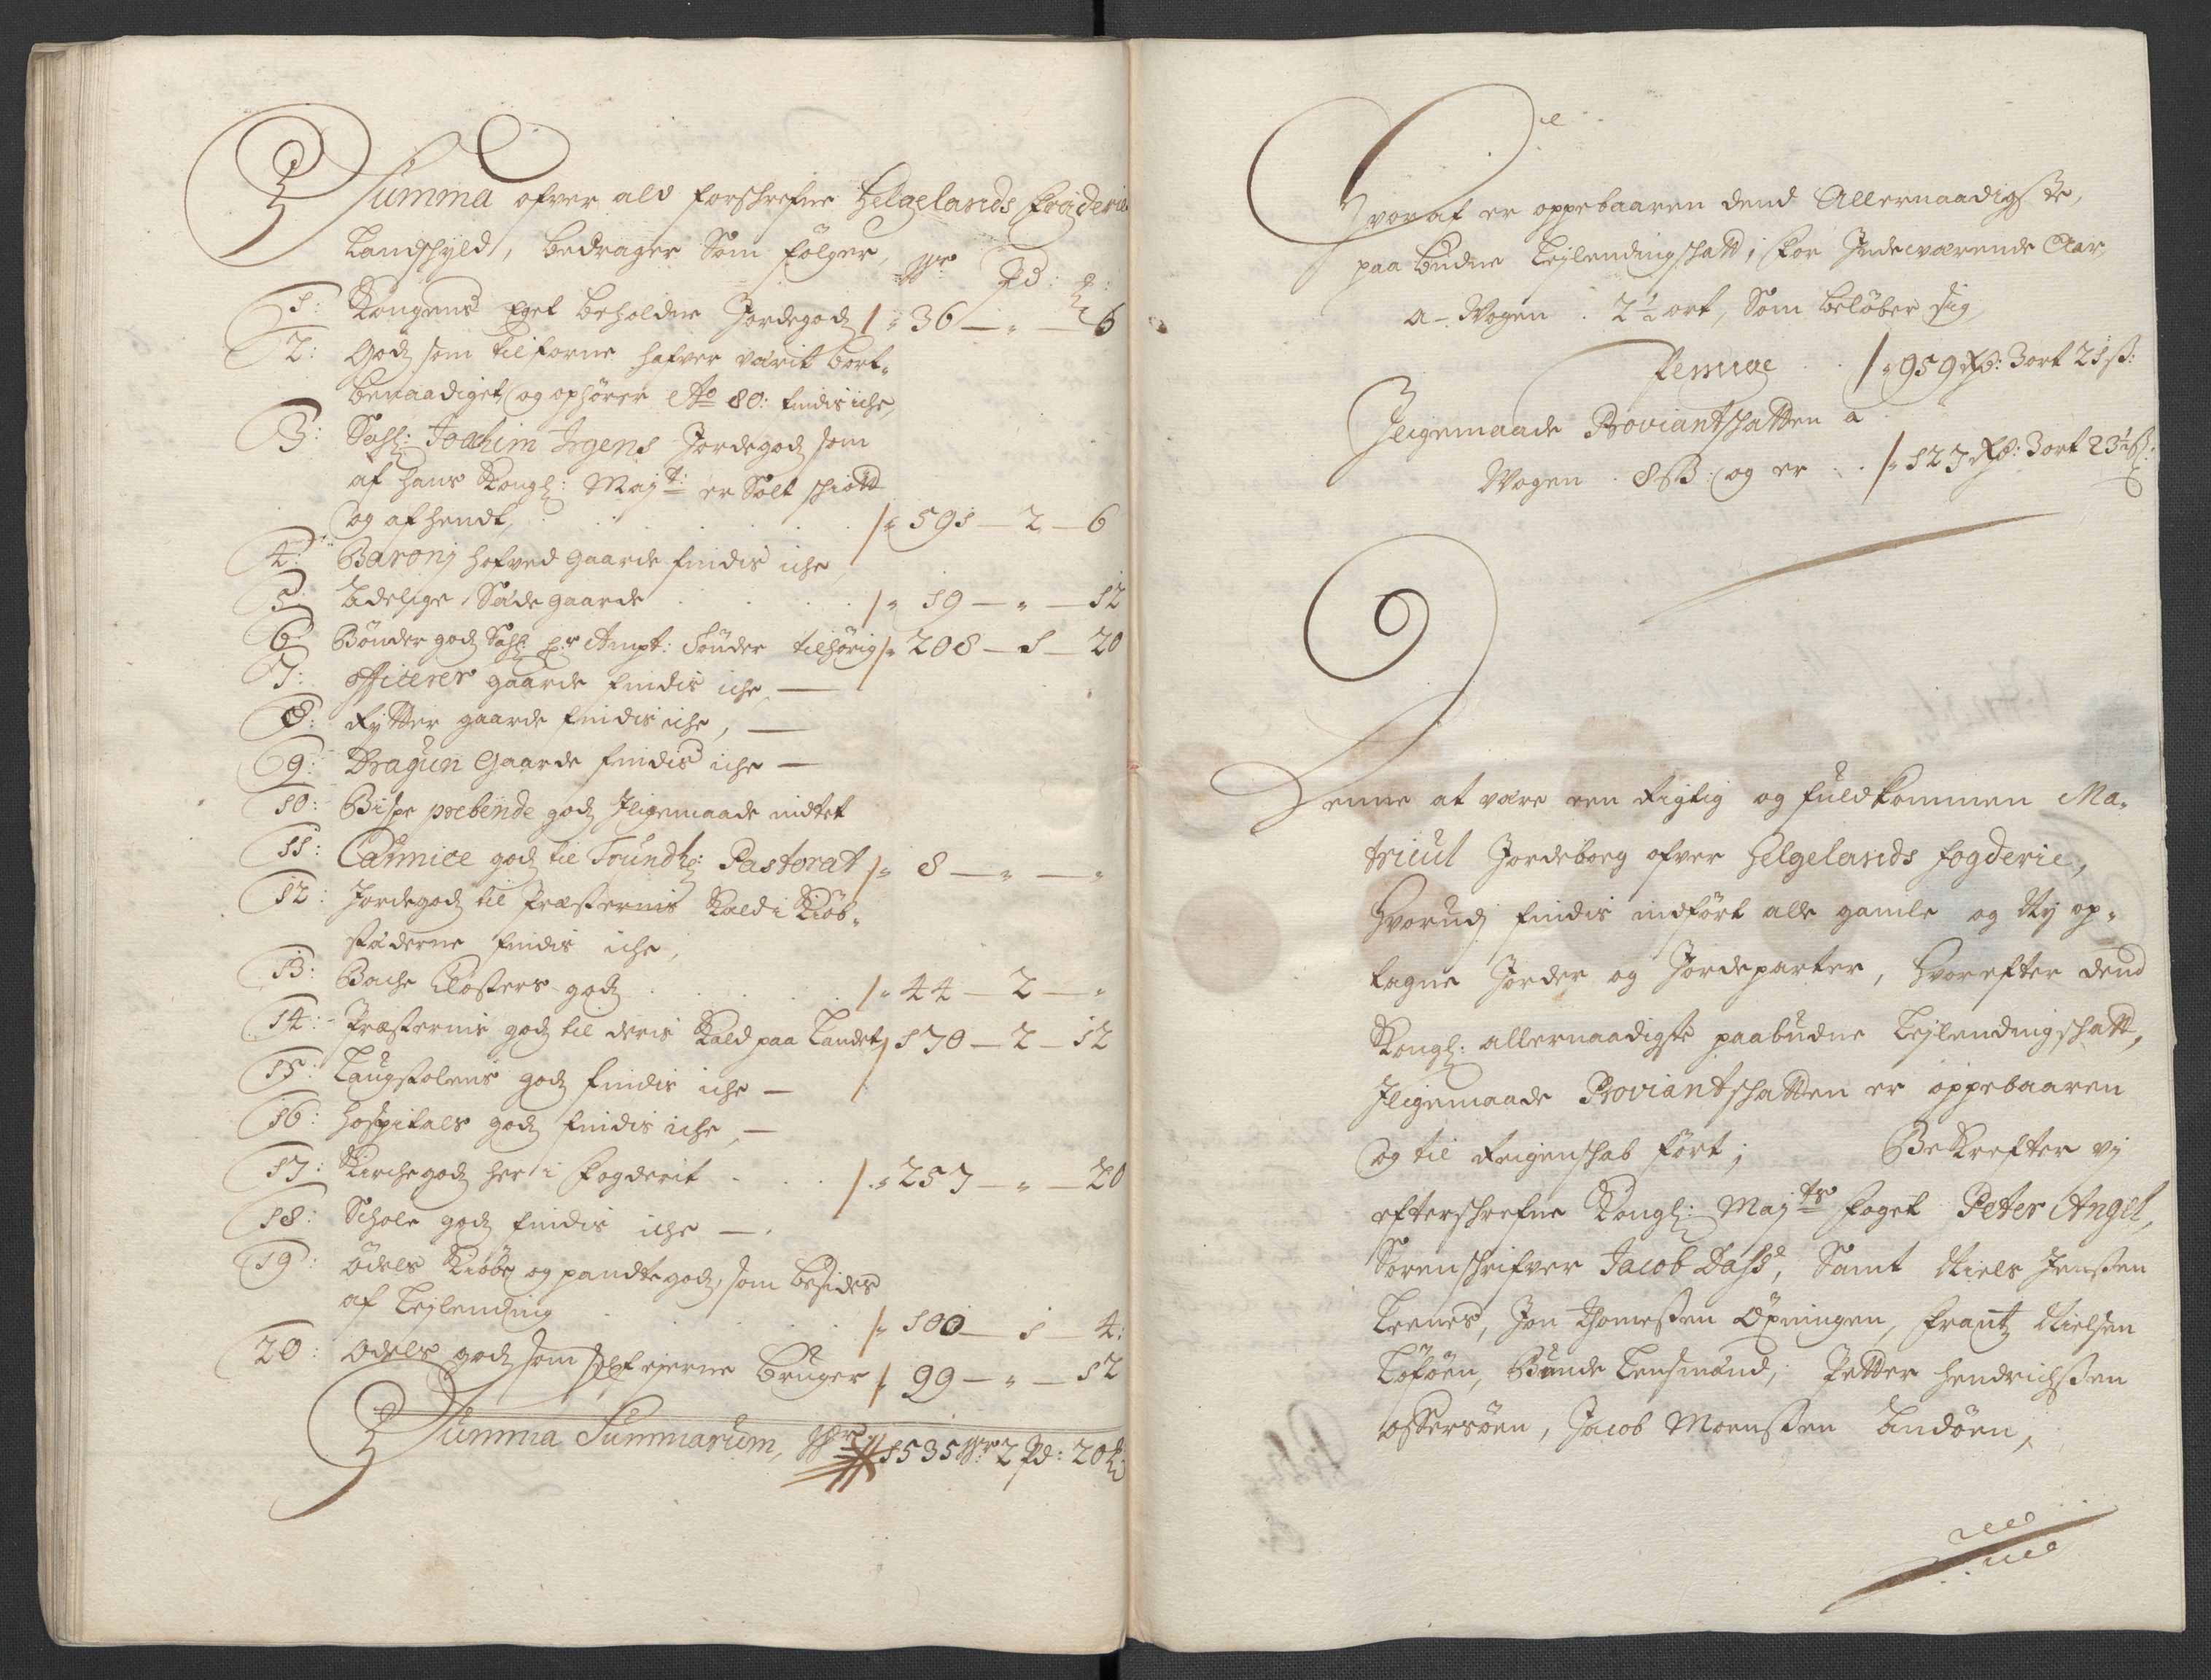 Summa ofver ald forschrefne Helgelands Fogderie
Landschyld, bedrager Som følger,
Wr Pd: ℔:
1: Kongens Eget beholdne Jordegodz 36 — „ — 6
2: Godz som tilforne hafver værit bort-
benaadiget og ophører Ao 80: findis iche,
3: Sahl: Joachim Irgens Jordegodz som
af Hans Kongl: Mayt: er Solt schiøtt
og afhendt, 591 — 2 — 6
4: Baronj Hofved gaarde findis iche,
5: Adelige Sædegaarde 19 — „ — 12
6: Bønder godz Sahl: Hr Ampt: Sønder tilhørig 208 — 1 — 20
7: officerer gaarde findis iche —
8: Rytter gaarde findis iche, —
9: Dragun Gaarde findis iche —
10: Bispe prebende godz Iligemaade indtet
11: Cannice godz til Trundhr: Pastorat 8 — „ — „
12: Jordegodz til Præsternis Kald i Kiøb-
stæderne findis iche,
13: Bache Closters godz 44 — 2 — „
14: Præsternis godz til deris Kald paa Landet 170 — 2 — 12
15: Laugstolens godz findis iche —
16: Hospitals godz findis iche —
17: Kirche godz her i Fogderit 257 — „ — 20
18: Schole godz findis iche —
19: Odels Kiøbe og pandtegodz, som besides
af Lejlending 100 — 1 — 4:
20: Odels godz som self ejerne bruger 99 — „ — 12
Summa Summarum, Wr 1535 Wr 2 Pd: 20 ℔
Hvoraf er oppebaaren dend Allernaadigste,
paa budne Lejlendingschatt, for Indeværende Aar,
a Wogen 2½ ort, Som beløber sig
Penge 959 Rd: 3 ort 21 ß:
Iligemaade Proviantschatten a
Wogen 8 ß og er 127 Rd: 3 ort 23½ ß:
Denne at være een Rigtig og fuldkommen Ma-
tricul Jordebog ofver Helgelands fogderie,
Hvorudj findis indført alle gamle og Ny op-
tagne Jorder og Jordeparter, Hvorefter dend
Kongl: allernaadigste paabudne Lejlendingschatt,
Iligemaade Proviantschatten er oppebaaren
og til Reigenschab ført; Bekrefter vj
efterschrefne Kongl: Mayts foget Peter Angel,
Sorenschrifver Jacob Dass, Samt Niels Jenssen
Leenes, Jon Thomessen Øxningen, Frantz Nielsen
Løføen, Bunde Lensmænd, Petter Hendrichssen
Ossersøen, Jacob Monssen Andøen,